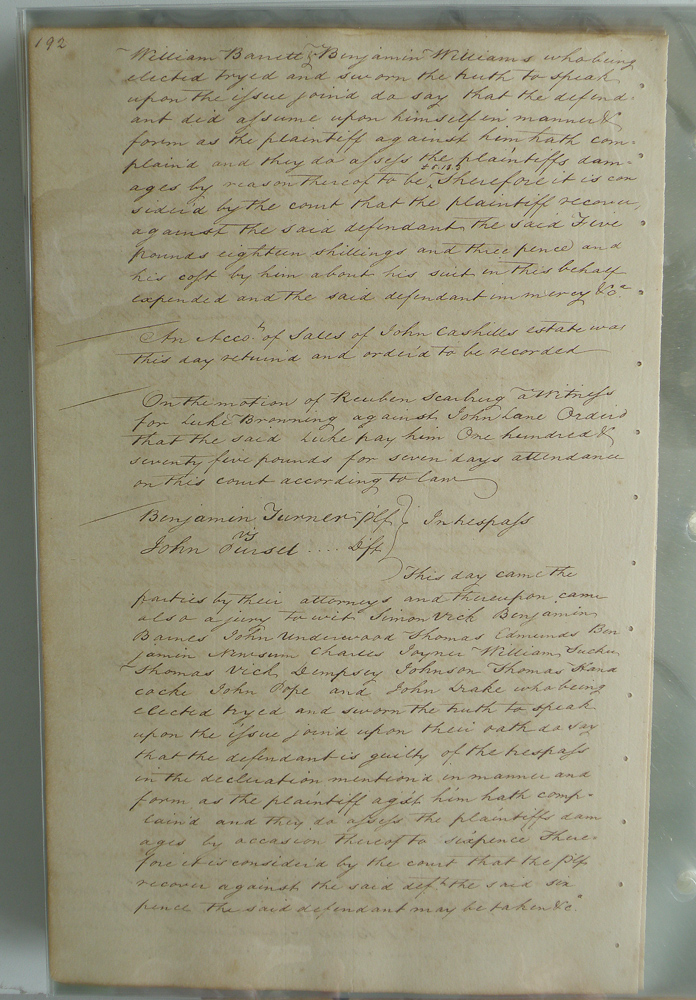 192
William Barrett & Benjamin Williams who being
elected tryed and sworn the truth to speak
upon the issue join'd do say that the defend-
ant did assume upon himself in manner &
form as the plaintiff against him hath com-
plain'd and they do assess the plaintiffs dam-
ages by reason thereof to be £5.18.3 Therefore it is con
sider'd by the court that the plaintiff recover,
against the said defendant the said Five
pounds eighteen shillings and three pence and
his cost by him about his suit in this behalf
expended and the said defendant in mercy &c.a
An Acco.t of Sales of John Cashills estate was
this day return'd and order'd to be recorded
On the motion of Reuben a Witness
for Luke Bronning against John Lane Order'd
that the said Luke pay him One hundred &
seventy five pounds for seven days attendance
on this court according to law
Benjamin Turner Plf } In trespass
vs
John .... Dft
This day came the
parties by their attorneys and thereupon came
also a jury to wit Simon Vick Benjamin
Barnes John Underwood Thomas Edmunds Ben
jamin Newsum Charles Joyner William Tucker
Thomas Vick Dempsey Johnson Thomas Hand
cocke John Pope and John Drake who being
elected tryed and sworn the truth to speak
upon the issue join'd upon their oath do say
that the defendant is guilty of the trespass
in the declaration mention'd in manner and
form as the plaintiff agst him hath comp-
lain'd and they do assess the plaintiffs dam
ages by occasion thereof to sixpence There-
fore it is consider'd by the court that the Plf
recover against the said deft the said six
pence the said defendant may be taken &c.a